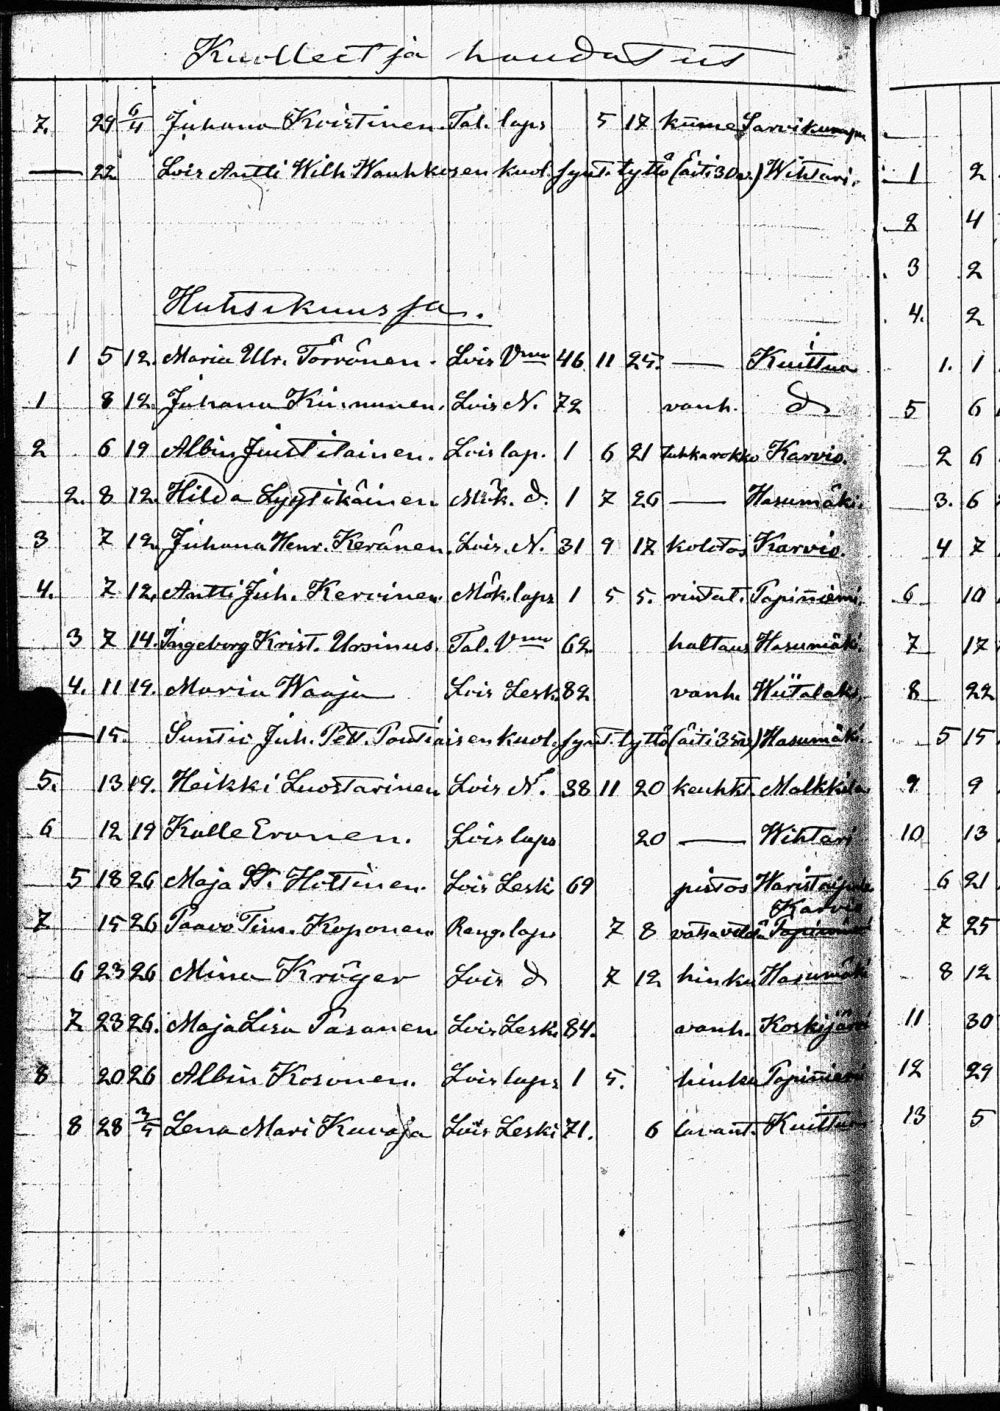 Kuolleet ja haudatut
7. 29 6/4 Juhana Kvistinen. Tal. laps 5 17 kume Sarvikumpu
— 22 Lois Antti Wilh Wauhkosen kuol. synt. tyttö (äiti 30v.) Wihtari.
Huhtikuussa.
1 5 12. Maria Ulr. Törrönen. Lois Vmo 46 11 25. — Kuittua
1 8 12 Juhana Kinnunen. Lois N. 72 vanh. d
2 6 19 Albin Juutilainen. Lois lap. 1 6 21 tuhkarokko Karvio.
2. 8 12. Hilda Lyytikäinen Mök. d. 1 7 26 — Hasumäki.
3 7 12 Juhana Henr. Keränen. Lois. N. 31 9 17 kolotos Karvio.
4. 7 12. Antti Juh. Kervinen. Mök. laps 1 5 5. rintat. Papinniemi.
3 7 14. Ingeborg Krist. Ursinus. Tal. Vmo 62. haltaus Hasumäki.
4. 11 19. Maria Waaja Lois Lesk. 82 vanh. Wiitalak.
— 15. Suntio Juh. Pett. Poutiaisen kuol. synt. tyttö (äiti 35v) Hasumäki.
5. 13 19. Heikki Luostarinen Lois N. 38 11 20 keuhkt Malkkila
6 12 19 Kalle Eronen. Lois laps 20 — Wihtari
5 18 26 Maja St. Hottinen. Lois Leski 69 pistos
Karvio
7 15 26 Paavo Tim. Koponen. Reng. laps 7 8 vatsavika Papinniemi
6 23 26 Mina Kröger Lois d 7 12 hinku Hasumäki
7 23 26. Maja Lisa Pasanen Lois Lesk. 84. vanh. Koskijärvi
8 20 26 Albin Kosonen. Lois laps 1 5. hinku Papinniemi
8 28 3/5 Lena Mari Kavaja Lois Leski 71. 6 lavant. Kuittua
1 2
2 4
3 2
4. 2
1. 1
5 6
2 6
3. 6
4 7
6 10
7 17
8 22
5 15
9 9
10 13
6 21
7 25
8 12
11 30
12 29
13 5